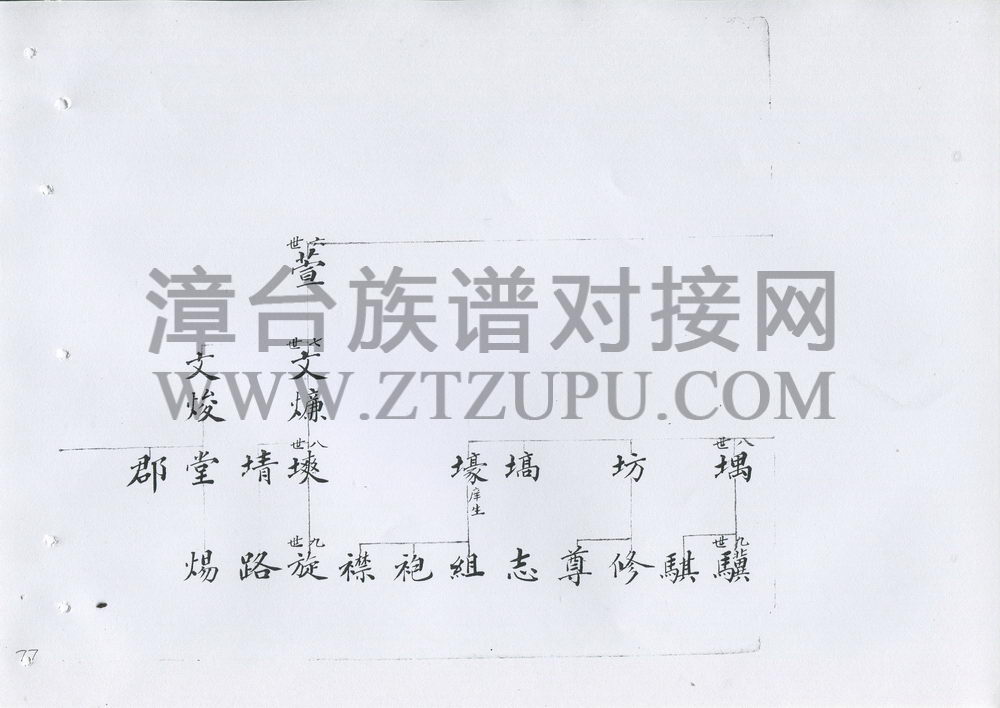 六世
萱
七世
文㷿 文焌
八世 八世
堣 坊 塙 壕 塽 堉 堂 郡
庠生
九世 九世
驥 騏 修 尊 志 組 袍 襟 旋 路 煬
漳台族谱对接网
WWW.ZTZUPU.COM
77